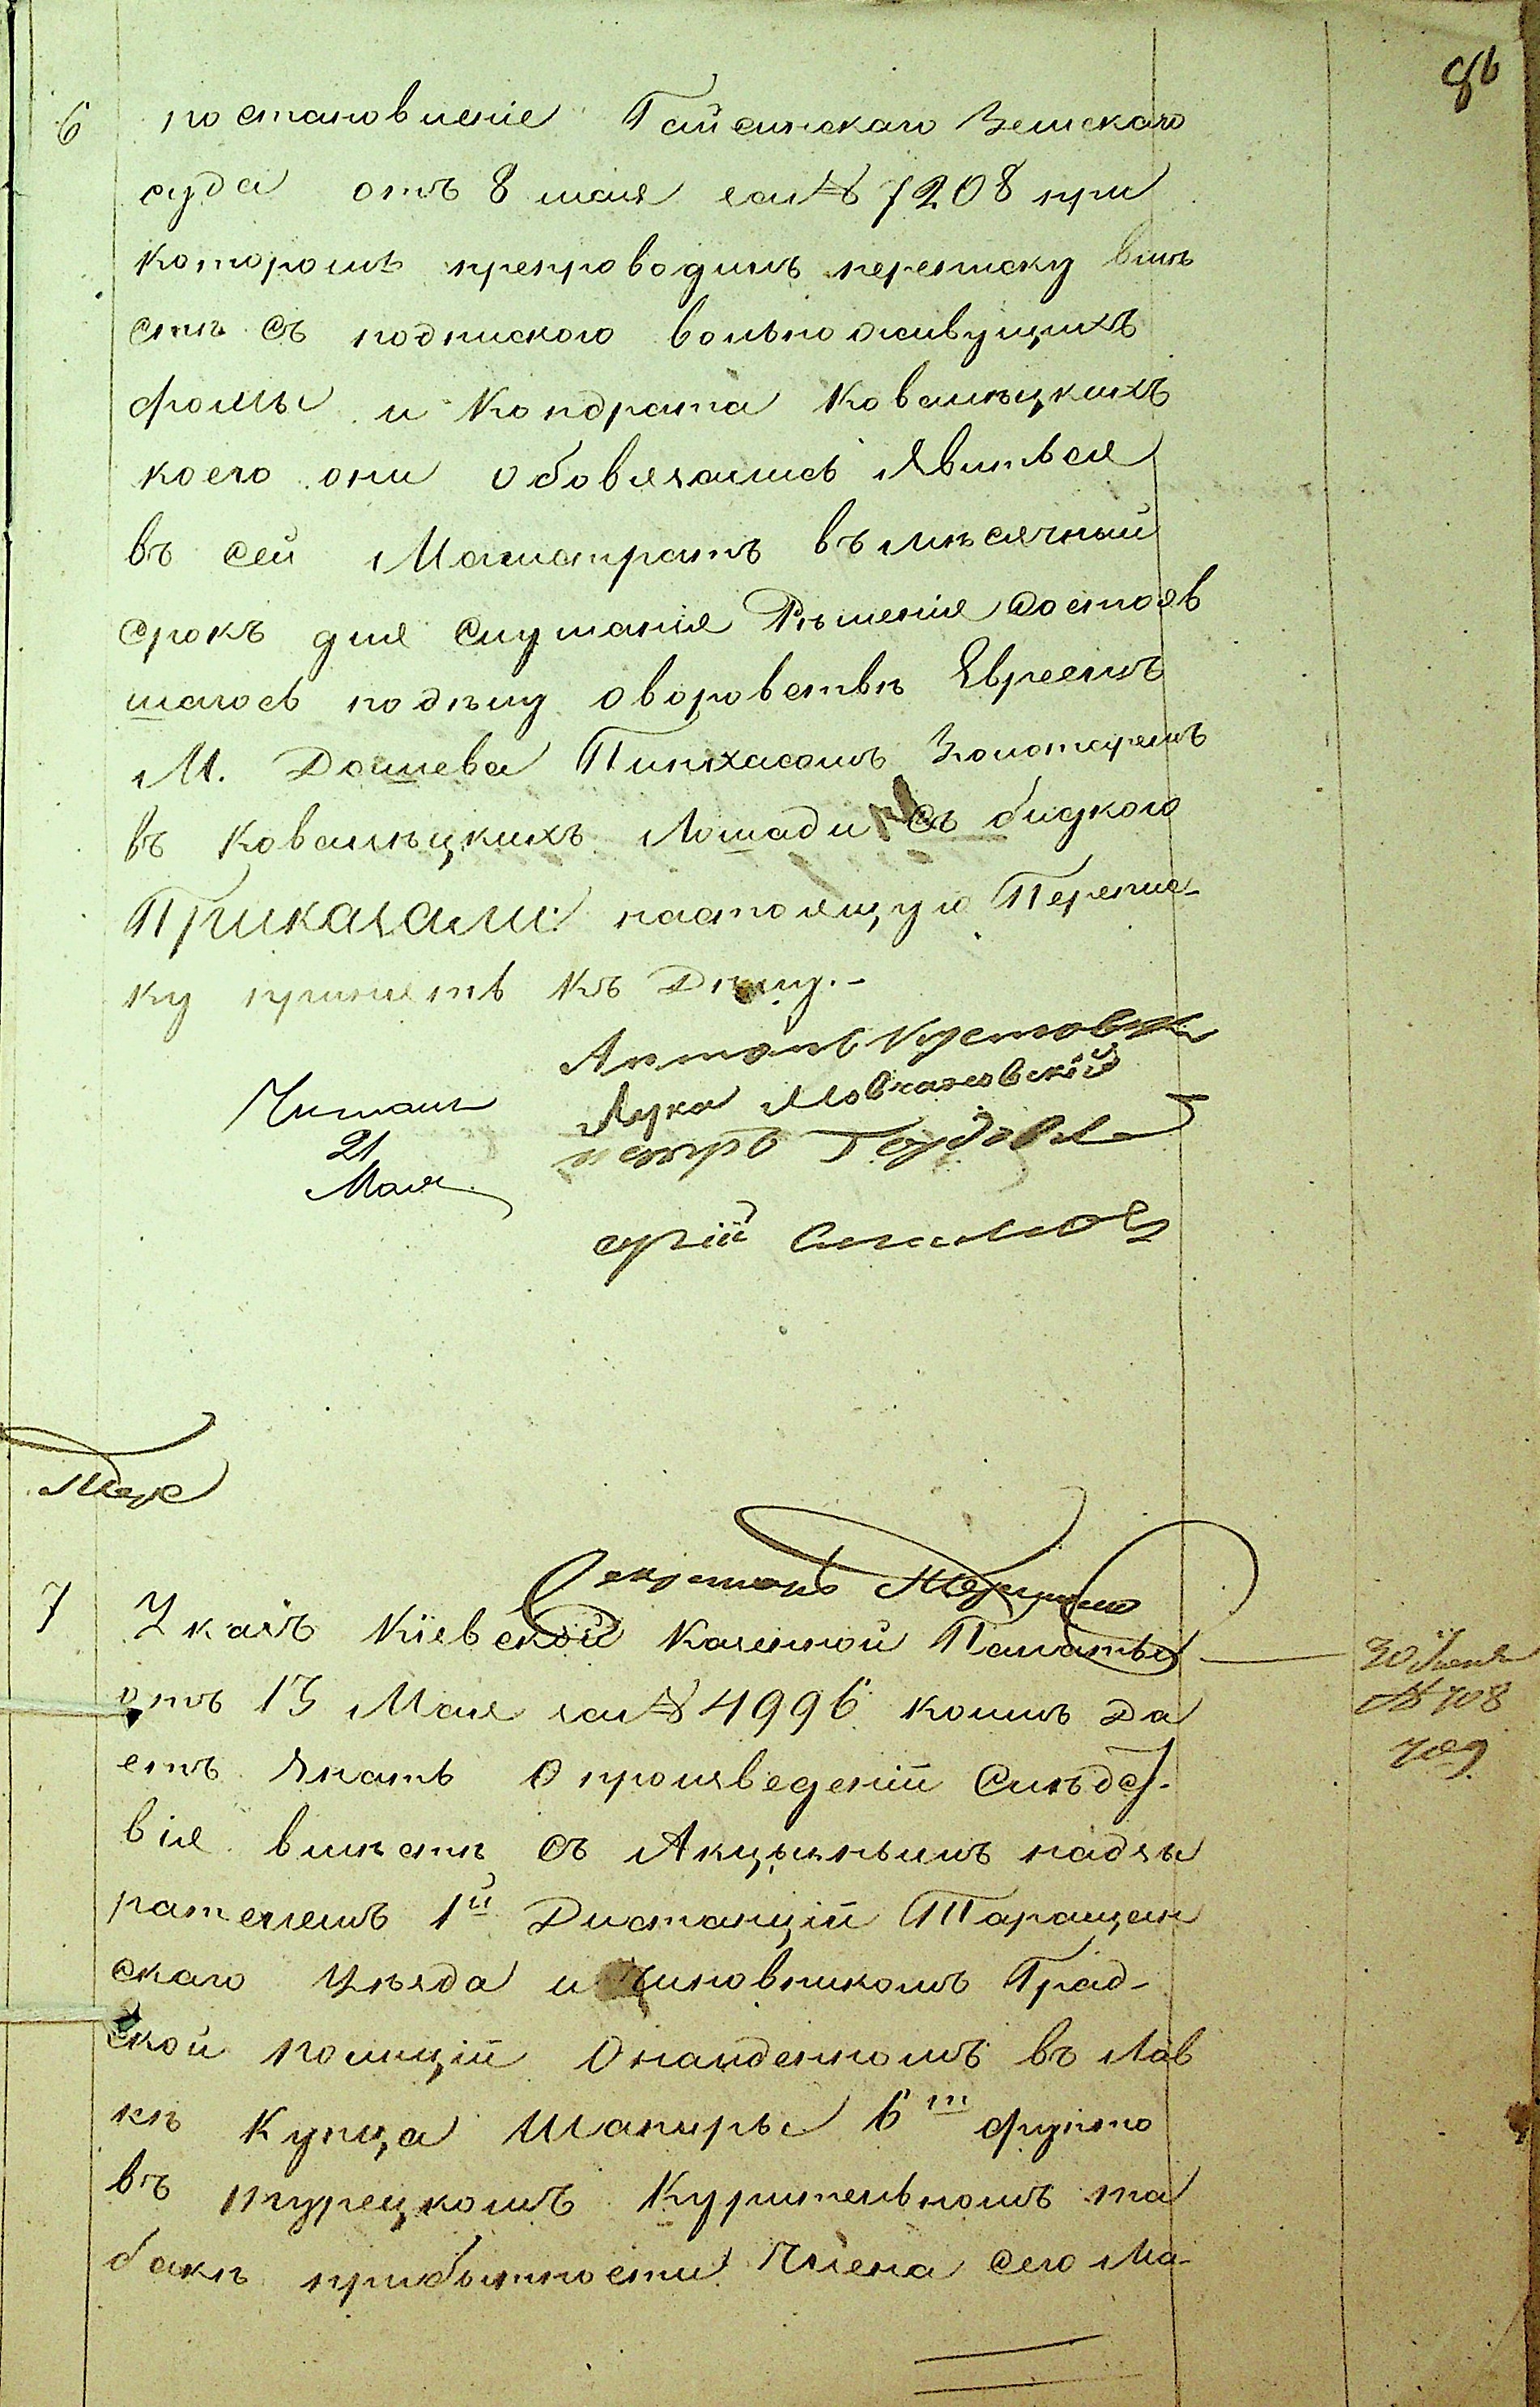 86
6 постановленіе Гайсинскаго Земскаго
суда отъ 8 мая за № 7208 при
которомъ препроводимъ переписку вмѣ
стѣ съ подпискою вольноживущихъ
Фомы и Кондрата Ковальцкихъ
коего они обовязались явиться
въ сей Магистратъ въ мѣсячный
срокъ для слушанія Рѣшенія состояв
шагось подѣлу оворовствѣ Евреемъ
М. Дашева Пинхасомъ Золотаремъ
въ Ковальцкихъ Лошади съ бидкою
Приказали: настоящую Перепис-
ку принять къ Дѣлу.-
Антонъ Кустовск
Лука Мовчановскій
Читалъ
21
Мая
петръ
7 Указъ Кіевской Казенной Палаты
отъ 13 Мая за № 4996 коимъ да
етъ знать о произведеніи Слѣдст-
вія вмѣстѣ съ Акцызнымъ надзы
рателемъ 1й Дистанціи Таращан
скаго Уѣзда и чиновникомъ Град-
ской полиціи Онайденномъ въ Лав
кѣ Купца Шапиры 6ти фунто
въ турецкомъ Курительномъ та
бакѣ прибытности Члена сего Ма-
Секретарь
30 Іюня
№ 708
709